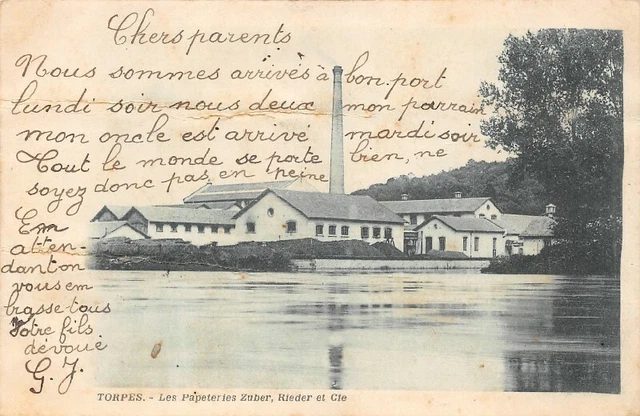 Chers parents
Nous sommes arrivés à bon port
lundi soir nous deux mon parrain
mon oncle est arrivé mardi soir
Tout le monde se porte bien, ne
soyez donc pas en peine
Em
atten-
dant on
vous em
brasse tous
Votre fils
dévoué
G. J.
TORPES. - Les Papeteries Zuber, Rieder et Cie